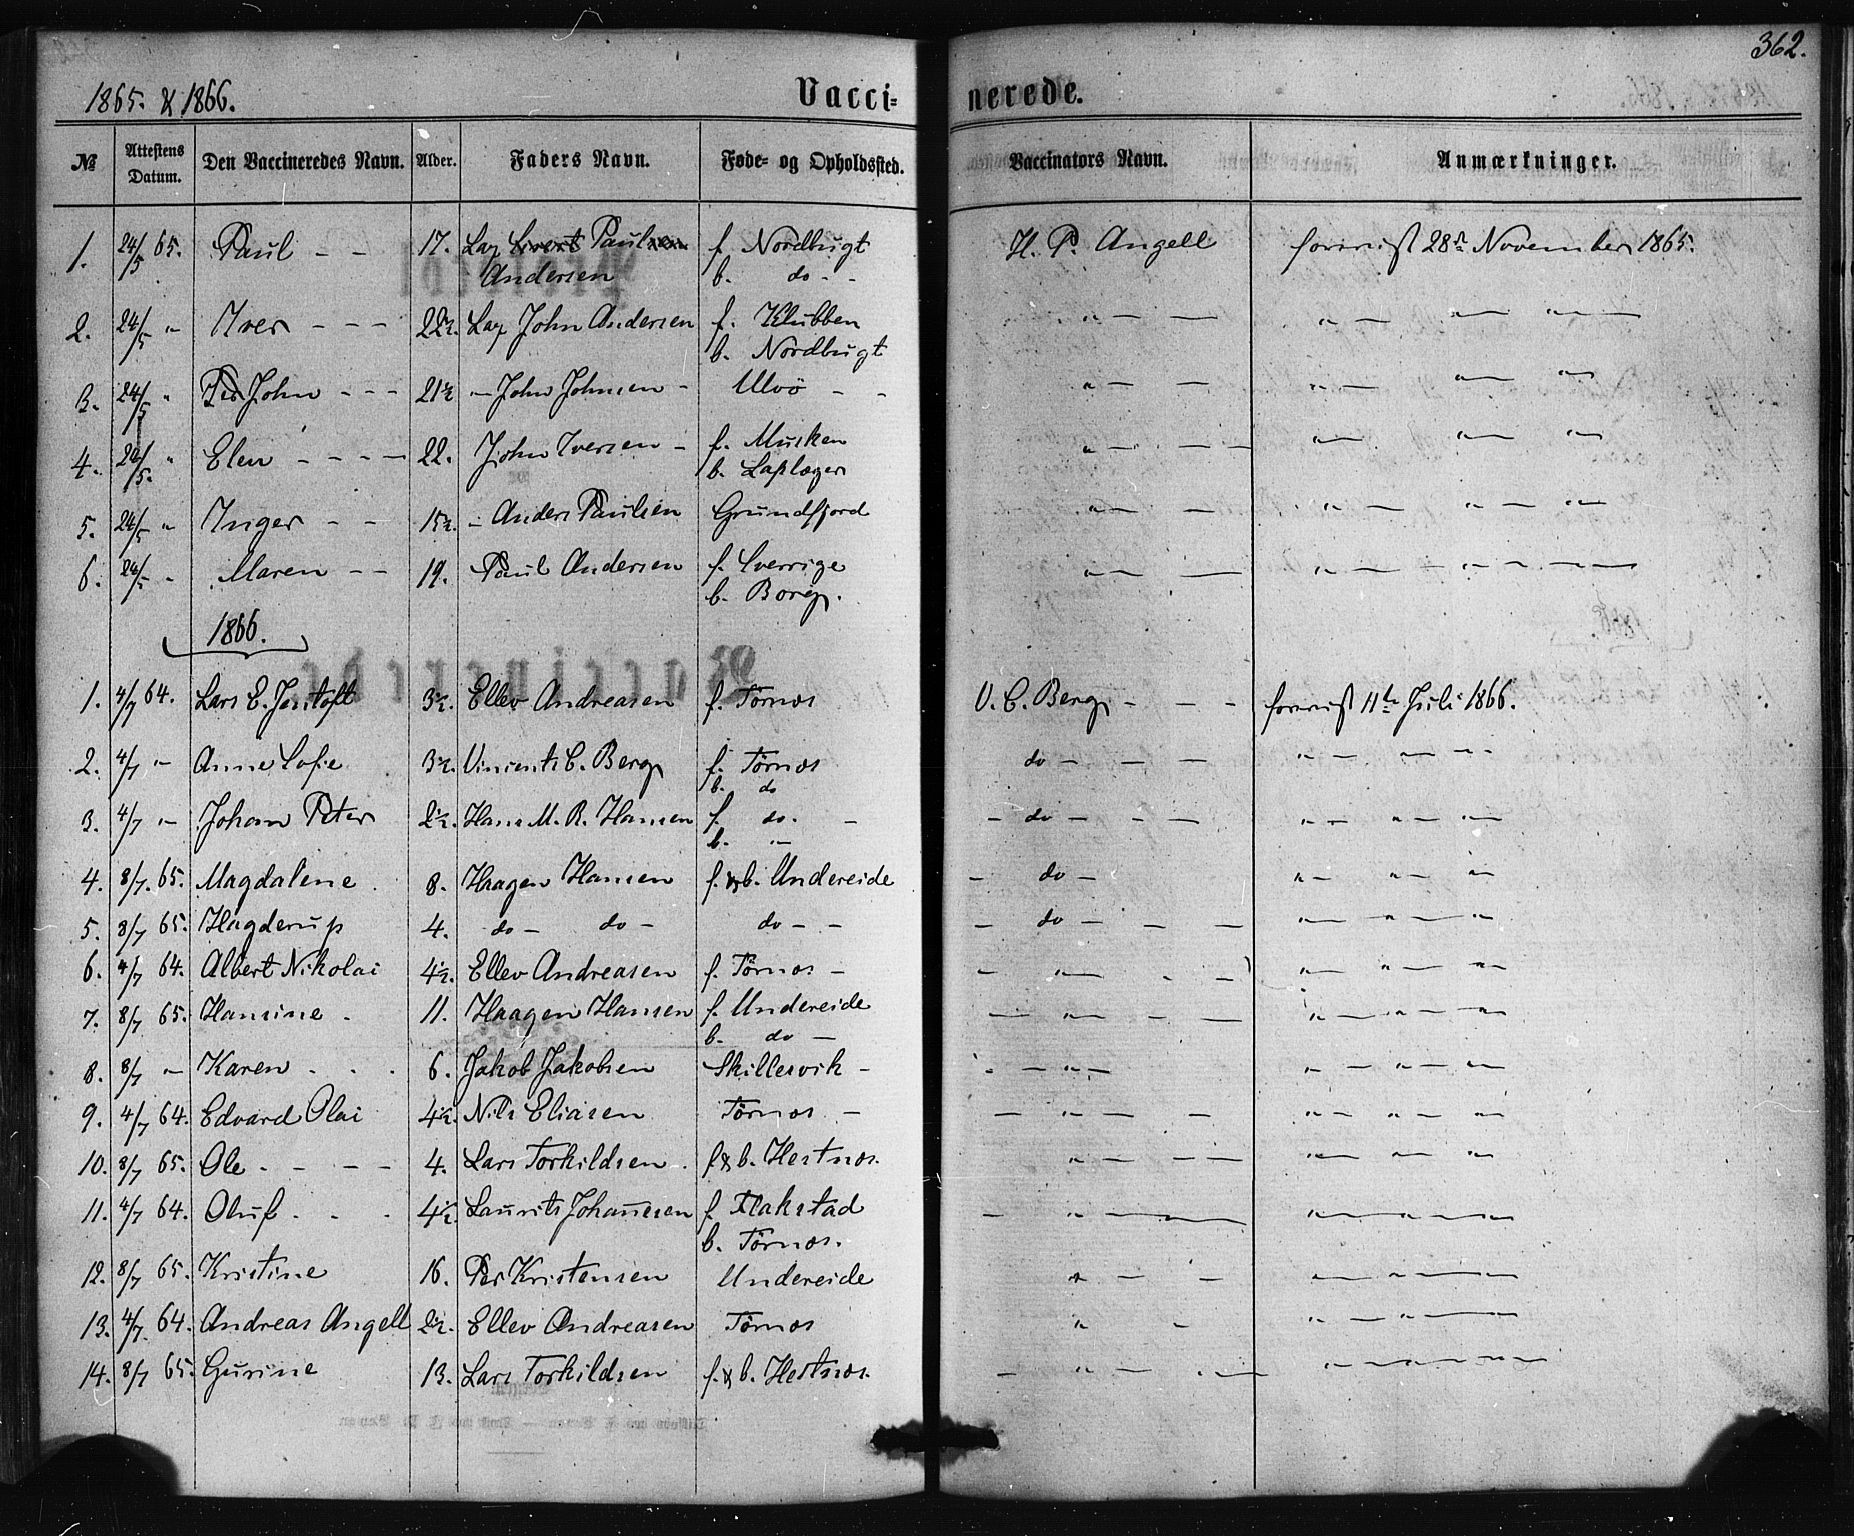 362.
1865. & 1866. Vacci= nerede.
№ Attestens Datum. Den Vaccineredes Navn. Alder. Faders Navn. Føde- og Opholdssted. Vaccinators Navn. Anmærkninger.
1. 24/5 65. Paul - - 17. Lap Paulsen f. Nordbugt H. P. Angell forevist 28de November 1865.
Andersen b. do - -
2. 24/5 " Iver - - - 22½. Lap John Andersen f. Klubben " - - " - " - " - " -
b. Nordbugt
3. 24/5 " John - - - 21½ - John Johnsen - Ulvö - - " - - " - " - " -
4. 24/5. " Elen - - - - 22. John Iversen - f. Musken " - - " - " - " -
b. Laplæger
5. 24/5 " Inger - - 15½. - Anders Paulsen Grundfjord " - - " - " - " - " -
6. 24/5 - " Maren - - 19. Paul Andersen f. Sverrige " - - " - " - " - " -
b. Borg.
1866.
1. 4/7 64. Lars E. Jentoft 3½. Ellev Andreasen f. Törnæs V. C. Berg - - - forevist 11te Juli 1866.
2. 4/7 " - Anne Sofie 3½. Vincents C. Berg f. Törnæs do - - - " - " - " -
b. do
3. 4/7 " - Johan Peter 2½. Hans M. R. Hansen f. do. - - do - - - " - " - " -
b. " -
4. 8/7. 65. Magdalene. 8. Haagen Hansen f. & b. Undereide - do - " - " - " -
5. 8/7 65. Hagderup 4. do - do - do - - - do - - - " - " - " -
6. 4/7 64. Albert Nikolai 4½. Ellev Andreasen f. Törnæs - - " - - - " - " - " -
7. 8/7 65. Hansine. 11. Haagen Hansen f. Undereide - " - - - " - " - " -
b. do -
8. 8/7 - Karen. . . 6. Jakob Jakobsen Skillesvik - - - " - " - " - " -
9. 4/7 64. Edvard Olai 4½. Nils Eliasen Törnæs - - " - - " - " - " -
10. 8/7 65. Ole. - - - 4. Lars Torkildsen. f & b. Hestnæs. " - - - " - " - " -
11. 4/7 64. Oluf. . . 4½. Laurits Johannesen f. Flakstad - " - - " - " - " -
b. Törnæs.
12. 8/7 65. Kristine 16. Per Kristensen Undereide " - - " - " - " -
13. 4/7. 64. Andreas Angell 2½. Ellev Andreasen Törnæs " - " - " - " -
14. 8/7 65. Gurine 13. Lars Torkildsen f. & b. Hestnæs. - " - - - " - " - " -